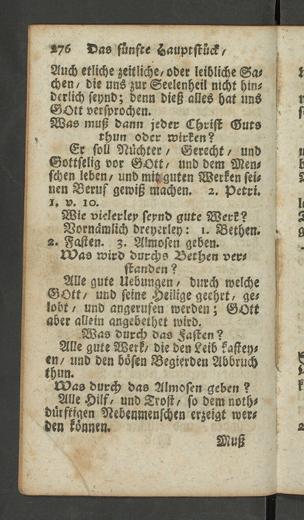 276 Das fünfte Hauptstück/
Auch etliche zeitliche/ oder leibliche Sa-
chen/ die uns zur Seelenheil nicht hin-
derlich seynd; denn dieß alles hat uns
GOtt versprochen.
Was muß dann jeder Christ Guts
thun oder wirken?
Er soll Nüchter/ Gerecht/ und
Gottselig vor GOtt/ und dem Men-
schen leben/ und mit guten Werken sei-
nen Beruf gewiß machen. 2. Petri.
1. v. 10.
Wie vielerley seynd gute Werk?
Vornämlich dreyerley: 1. Bethen.
2. Fasten. 3. Almosen geben.
Was wird durchs Bethen ver-
standen?
Alle gute Uebungen/ durch welche
GOtt/ und seine Heilige geehrt/ ge-
lobt/ und angerufen werden; GOtt
aber allein angebethet wird.
Was durch das Fasten?
Alle gute Werk/ die den Leib kastey-
en/ und den bösen Begierden Abbruch
thun.
Was durch das Almosen geben?
Alle Hilf/ und Trost/ so dem noth-
dürftigen Nebenmenschen erzeigt wer-
den können.
Muß